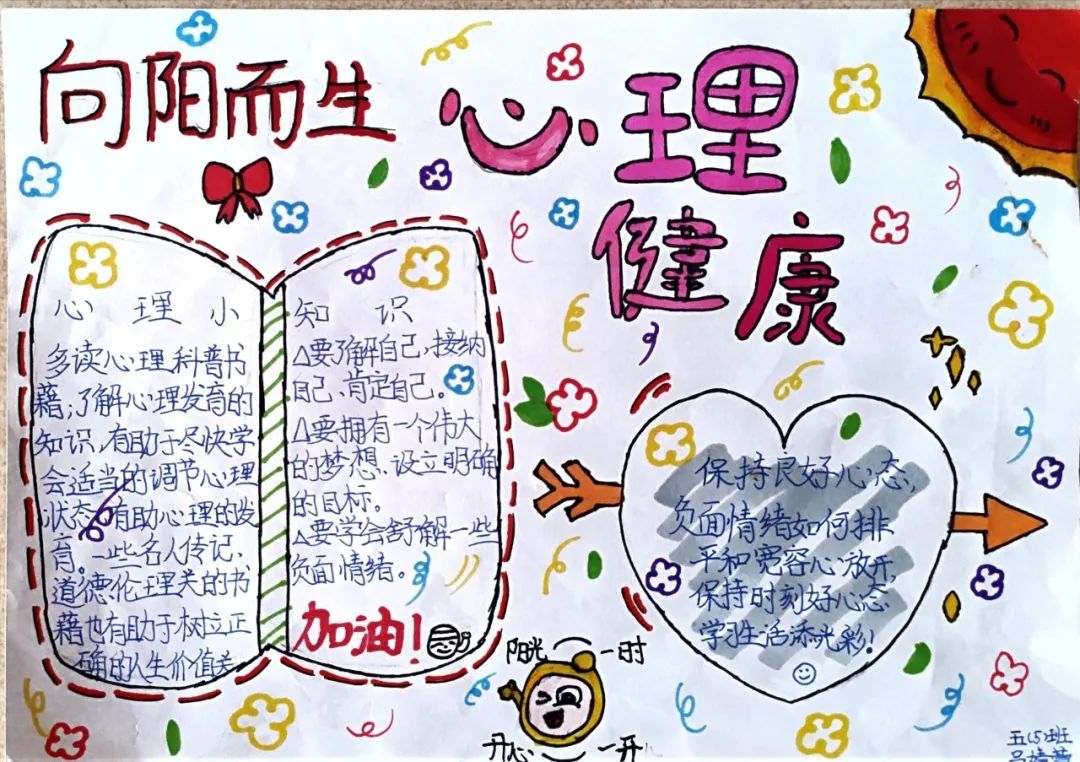 向阳而生
心理
健康
心理小知识
多读心理科普书
籍，了解心理发育的
知识，有助于尽快学
会适当的调节心理
状态，有助心理的发
育。一些名人传记，
道德伦理关的书
籍也有助于树立正
确的人生价值关
△要了解自己，接纳
自己、肯定自己。
△要拥有一个伟大
的梦想，设立明确
的目标。
△要学会舒解一些
负面情绪。
加油！
保持良好心态，
负面情绪如何排
平和宽容心放开，
保持时刻好心态
学习生活添光彩！
阳光 一时
开心 一开
五（5）班